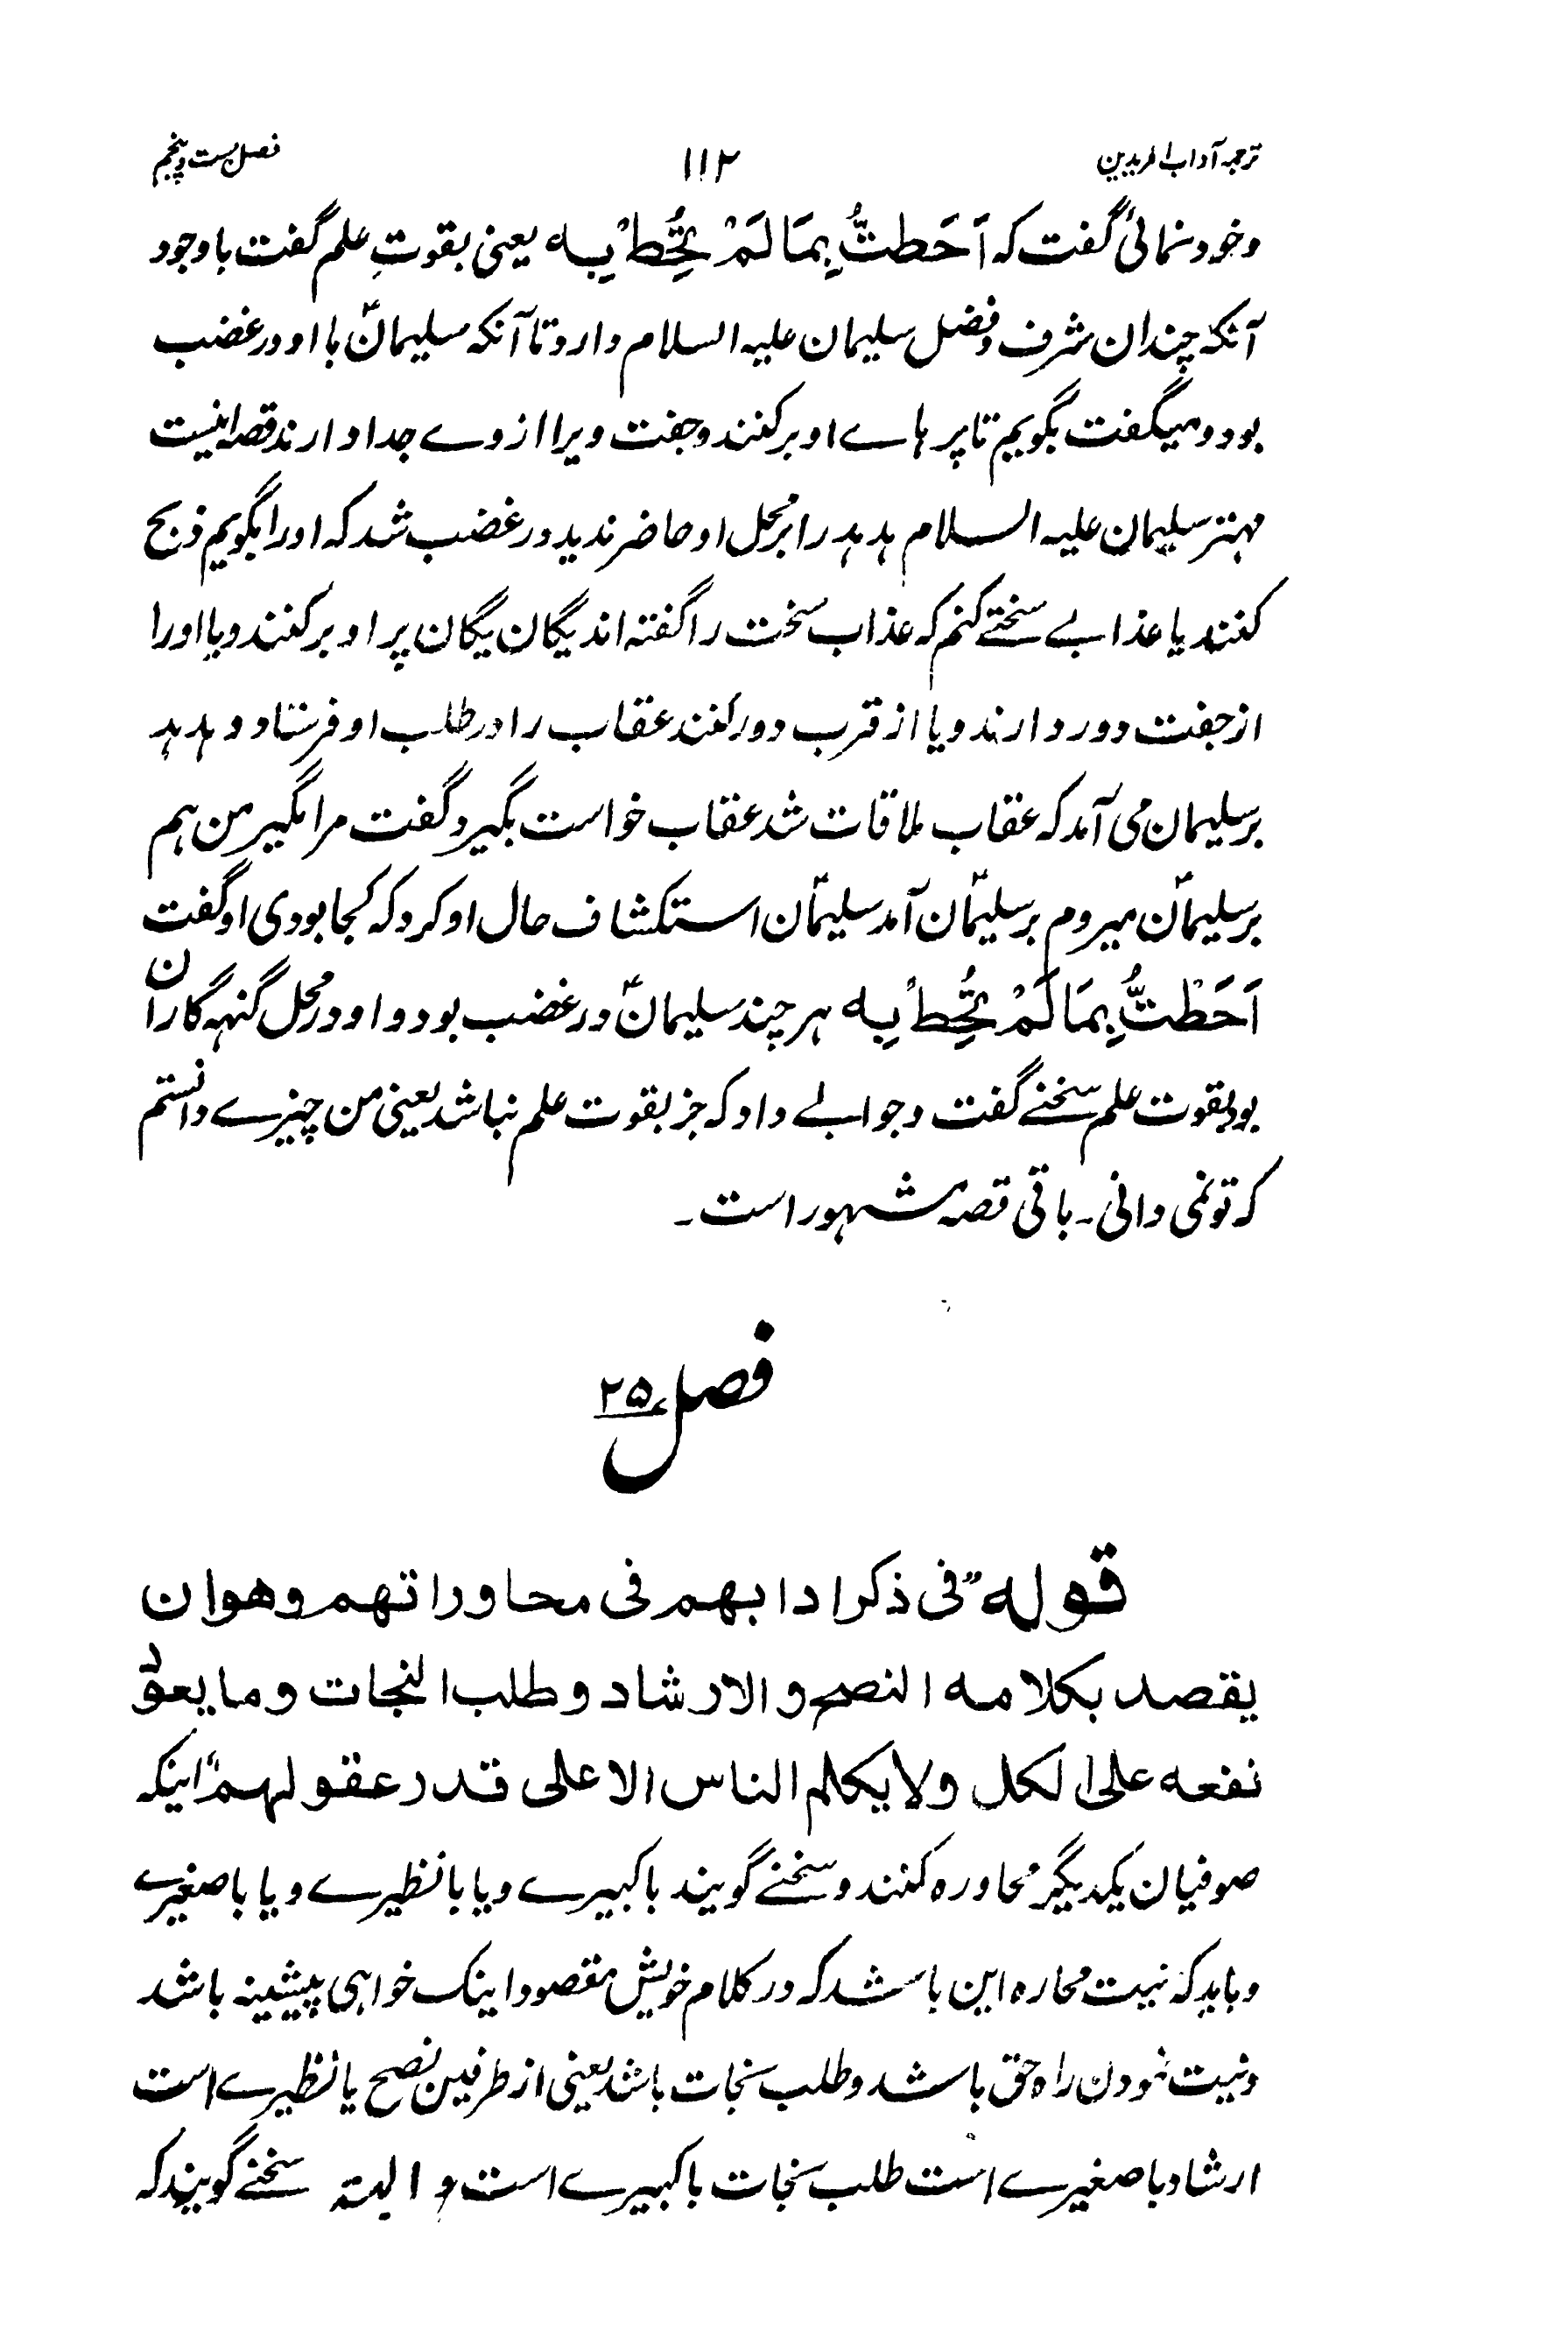 ترجمہ آداب المریدین ۱۱۲ فصل بست و پنجم
وخود نمائی گفت کہ اَحَطتُّ بِمَا لَمْ تُحِطْ بِہ یعنی بقوتِ علم گفت باوجود
آنکہ چندان شرف و فضل سلیمان علیہ السلام دارد تا آنکہ سلیمانؑ با او در غضب
بود و میگفت بگویم تا پرہاے او برکنند و جفت ویرا از وے جدا دارند قصہ اینست
مہتر سلیمان علیہ السلام ہدہد را بر محل او حاضر ندید در غضب شد کہ او را بگویم ذبح
کنند یا عذابے سختے کنم کہ عذاب سخت را گفتہ اند یگان یگان پر او برکنند و یا او را
از جفت دور دارند و یا از قرب دور کنند عقاب را در طلب او فرستاد و ہدہد
بر سلیمان می آمد کہ عقاب ملاقات شد عقاب خواست بگیرد گفت مرا مگیر من ہم
بر سلیمانؑ میروم بر سلیمانؑ آمد سلیمانؑ استکشاف حال او کرد کہ کجا بودی او گفت
اَحَطْتُّ بِمَا لَمْ تُحِطْ بِہ ہر چند سلیمانؑ در غضب بود و او در محل گنہہ گاران
بود بقوت علم سخنے گفت و جوابے داد کہ جز بقوت علم نباشد یعنی من چیزے دانستم
کہ تو نمی دانی۔ باقی قصہ مشہور است۔
فصل ۲۵
قولہ "فی ذکر ادابهم فی محاوراتهم وهو ان
یقصد بکلامه النصح والارشاد وطلب النجات وما یعود
نفعه علی الکل ولا یکلم الناس الا علی قدر عقولهم" اینکہ
صوفیان یکدیگر محاورہ کنند و سخنے گویند با کبیرے و یا با نظیرے و یا با صغیرے
و باید کہ نیت محارہ این باشد کہ در کلام خویش مقصود اینک خواہی پیشینہ باشد
و نیت نمودن راہ حق باشد و طلب نجات باشد یعنی از طرفین نصح یا نظیرے است
ارشاد با صغیرے است طلب نجات با کبیرے است و البتہ سخنے گویند کہ